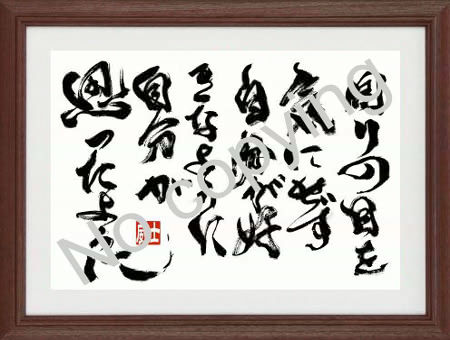 回りの目を
気にせず
自分が好
きなように
自分が
思ったように
No copying